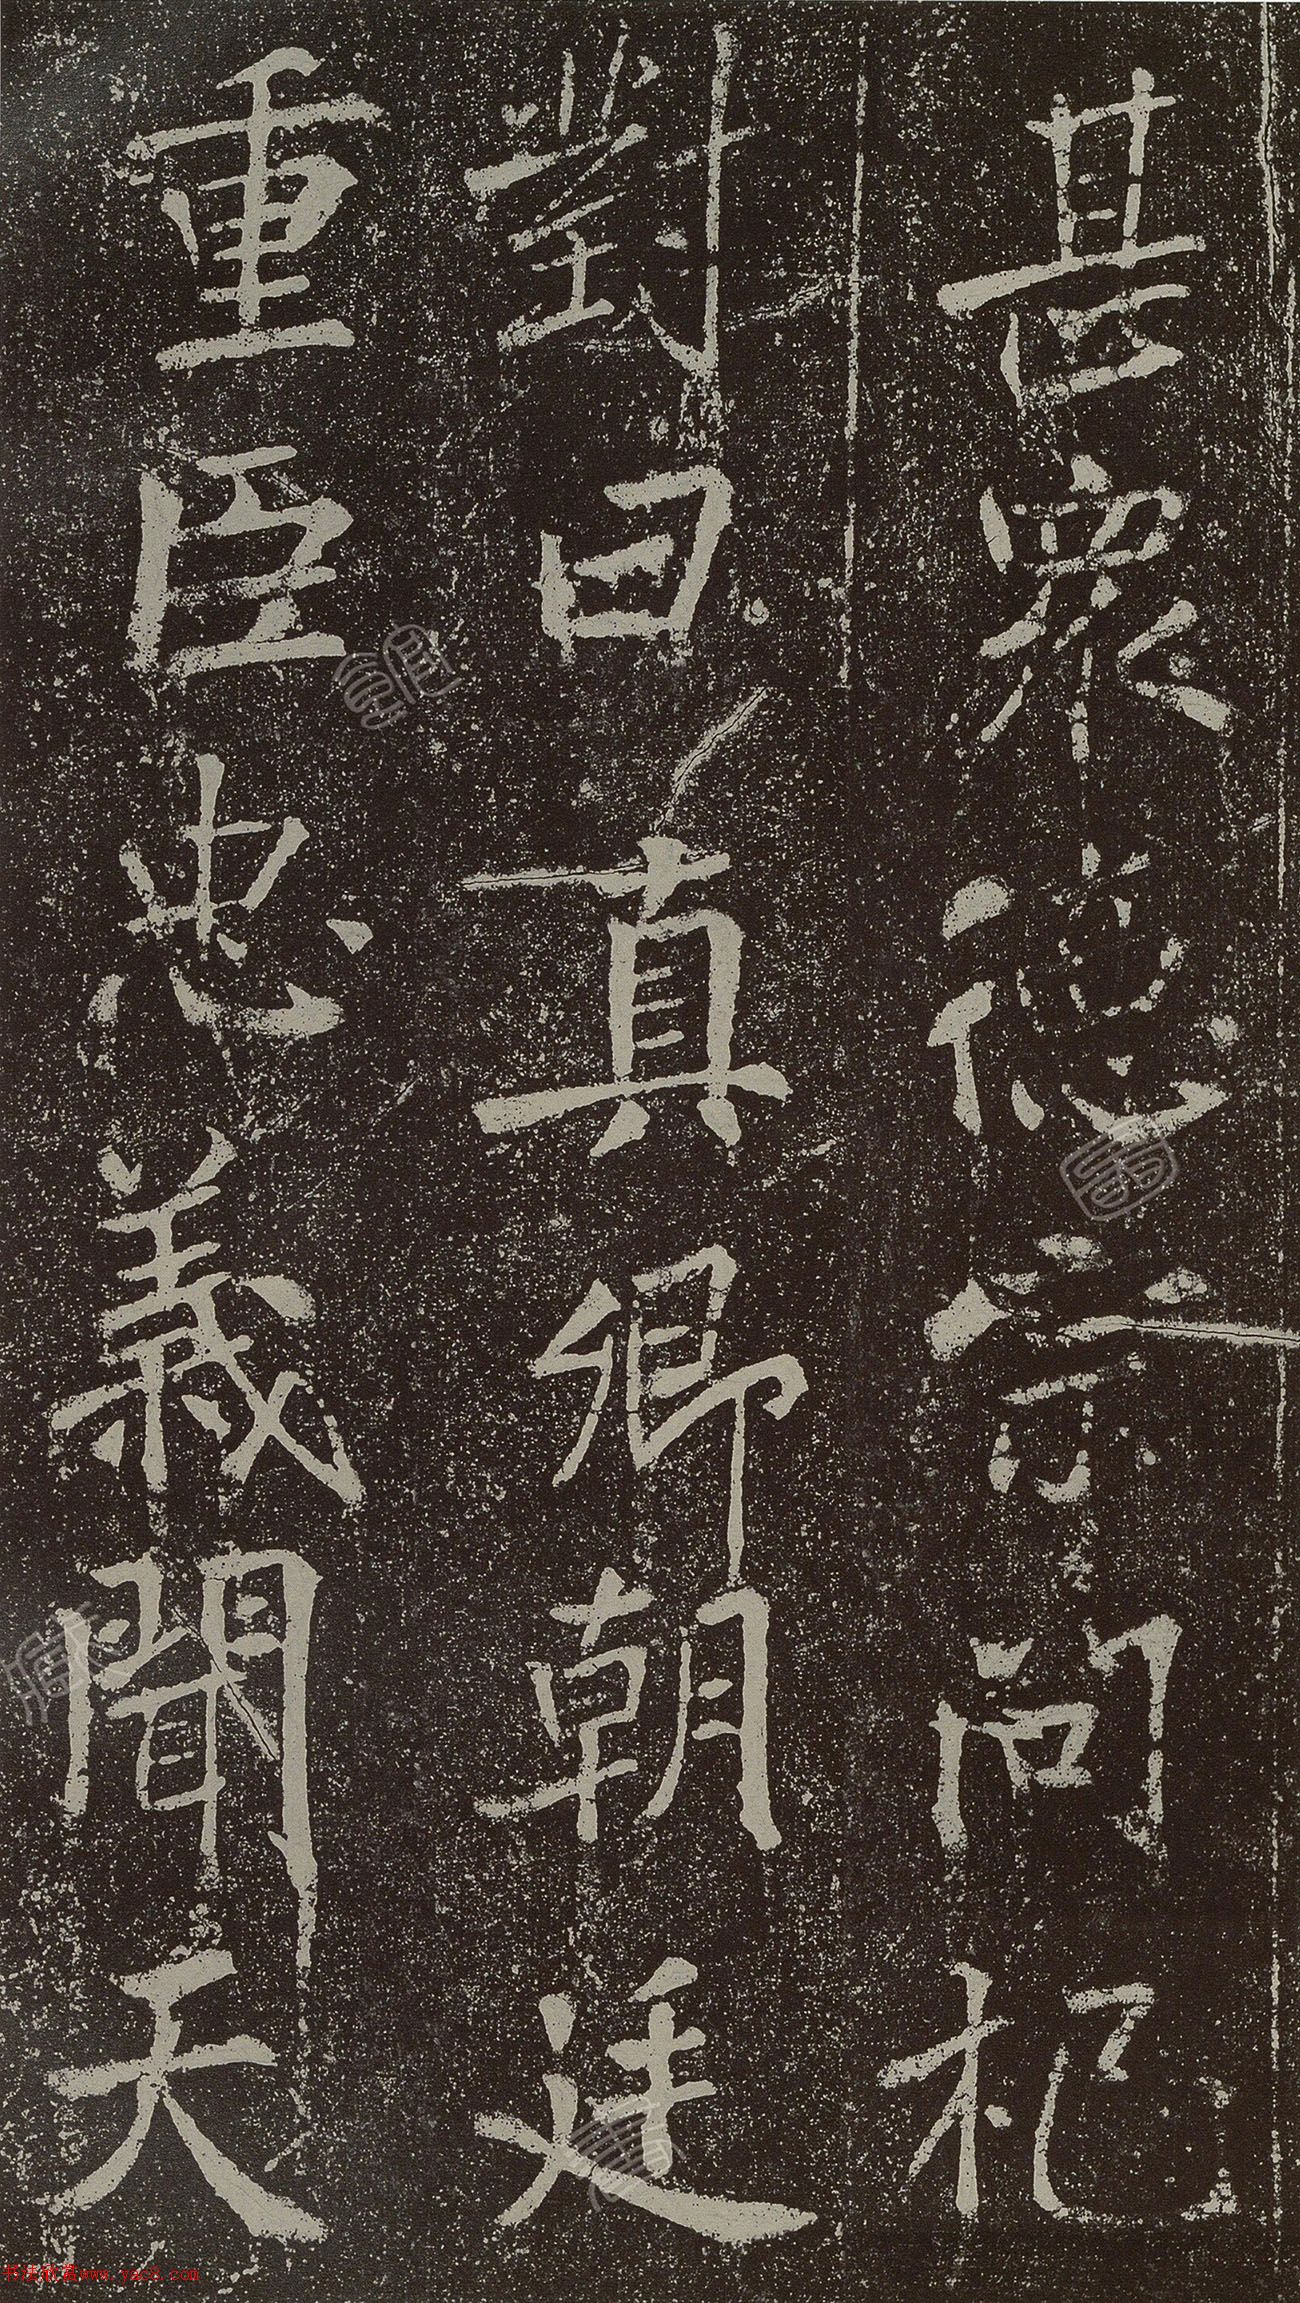 甚衆德宗問杞
對曰真卿朝廷
重臣忠義聞天
书法欣赏www.yac8.com